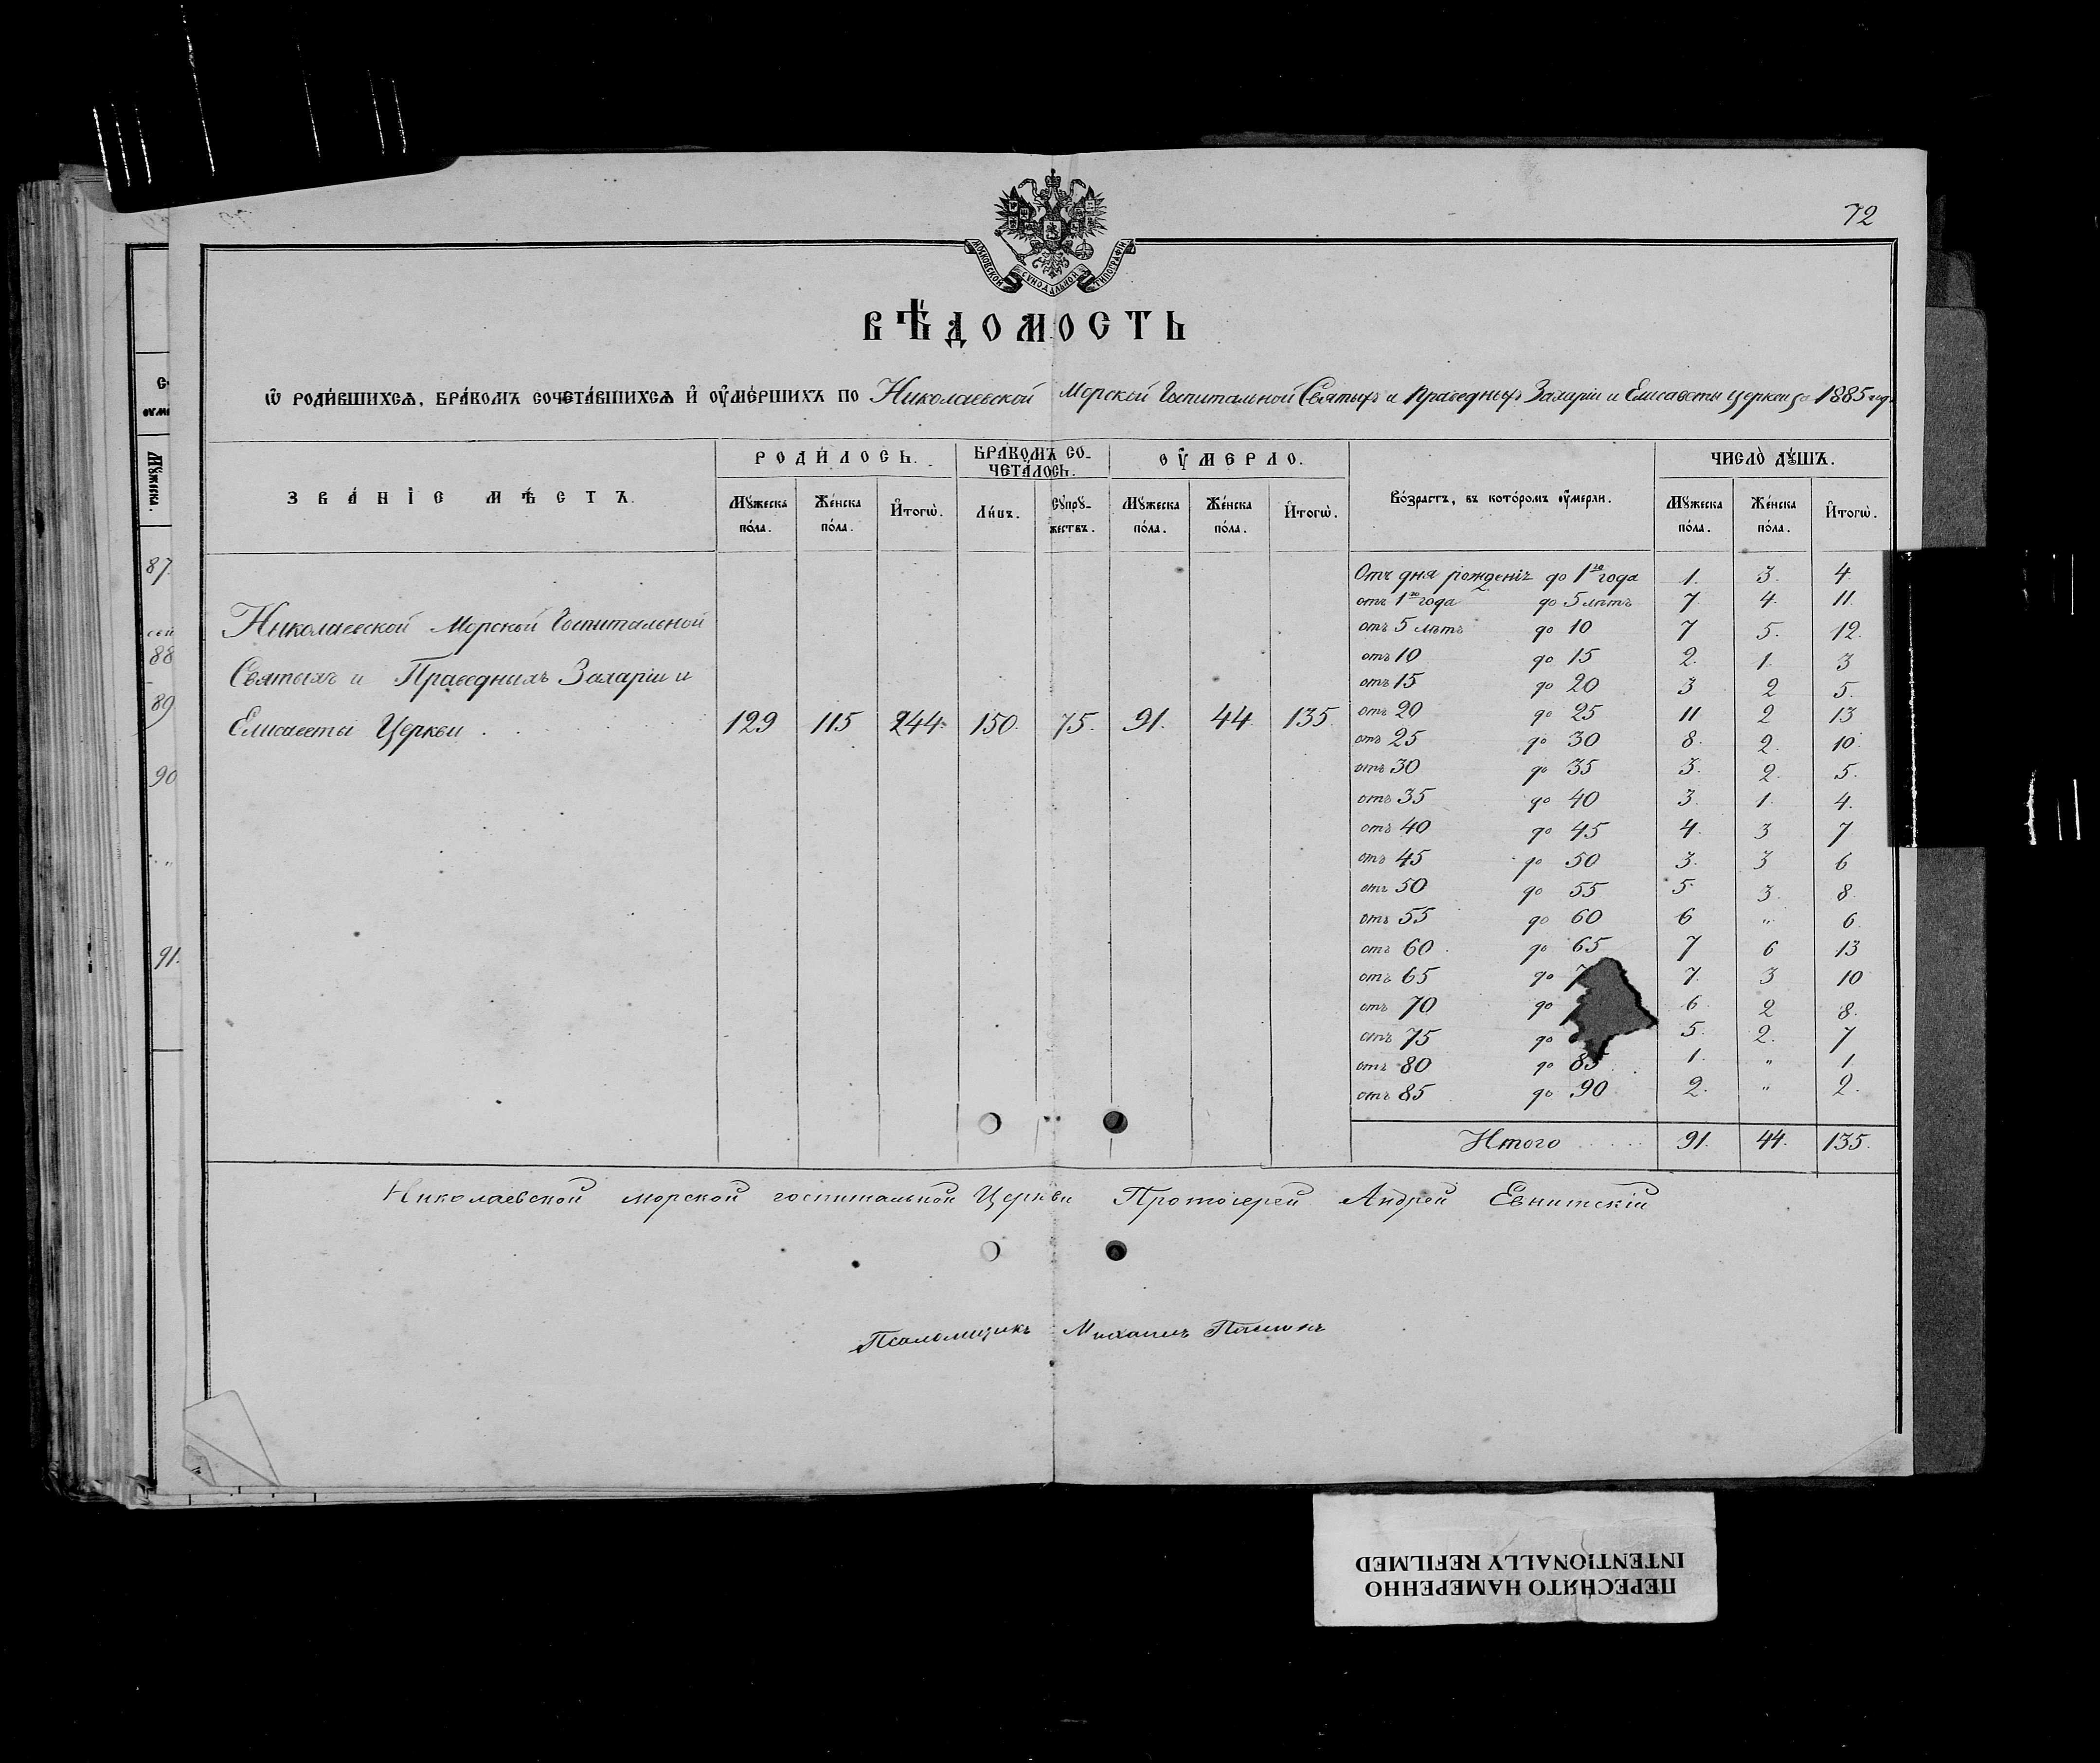 72
МОСКОВСКОЙ СѴНОДАЛЬНОЙ ТИПОГРАФІИ
ВѢДОМОСТЬ
Ѡ РОДИ́ВШИХСѦ, БРА́КОМЪ СОЧЕТА́ВШИХСѦ И҆ ОУ҆МЕ́РШИХЪ ПО Николаевской Морской Госпитальной Святыхъ и Праведныхъ Захаріи и Елисаветы церкви за 1885 годъ
ЗВА́НІЕ МѢ́СТЪ.
РОДИ́ЛОСЬ.
БРА́КОМЪ СОЧЕТА́ЛОСЬ.
ОУ҆́МЕРЛО.
Во́зрастъ, въ кото́ромъ оу҆́мерли.
ЧИСЛО̀ ДꙊ́ШЪ.
Мꙋ́жеска по́ла. Же́нска по́ла. И҆тогѡ̀. Ли́цъ. Сꙋпрꙋ́жествъ. Мꙋ́жеска по́ла. Же́нска по́ла. И҆тогѡ̀. Мꙋ́жеска по́ла. Же́нска по́ла. И҆тогѡ̀.
Николаевской Морской Госпитальной
Святыхъ и Праведныхъ Захаріи и
Елисаветы Церкви . 129 115 244. 150. 75. 91. 44. 135.
Отъ дня рожденія до 1го года 1. 3. 4.
отъ 1го года до 5 лѣтъ 7 4. 11.
отъ 5 лѣтъ до 10 7 5. 12.
отъ 10 до 15 2. 1. 3
отъ 15 до 20 3 2 5.
отъ 20 до 25 11 2 13
отъ 25 до 30 8. 2. 10.
отъ 30 до 35 3. 2. 5.
отъ 35 до 40 3. 1. 4.
отъ 40 до 45 4. 3 7
отъ 45 до 50 3. 3 6
отъ 50 до 55 5. 3. 8.
отъ 55 до 60 6 „ 6
отъ 60 до 65 7 6 13
отъ 65 до 7 7. 3 10
отъ 70 до 6. 2 8.
отъ 75 до 5. 2. 7
отъ 80 до 85 1. „ 1
отъ 85 до 90 2. „ 2.
Итого 91. 44. 135.
Николаевской морской госпитальной Церкви Протоіерей Андрей Евнитскій
Псаломщикъ Михаилъ
87.
88
89
90
91.
Мꙋ́жеска.
ПЕРЕСНЯТО НАМЕРЕННО
INTENTIONALLY REFILMED